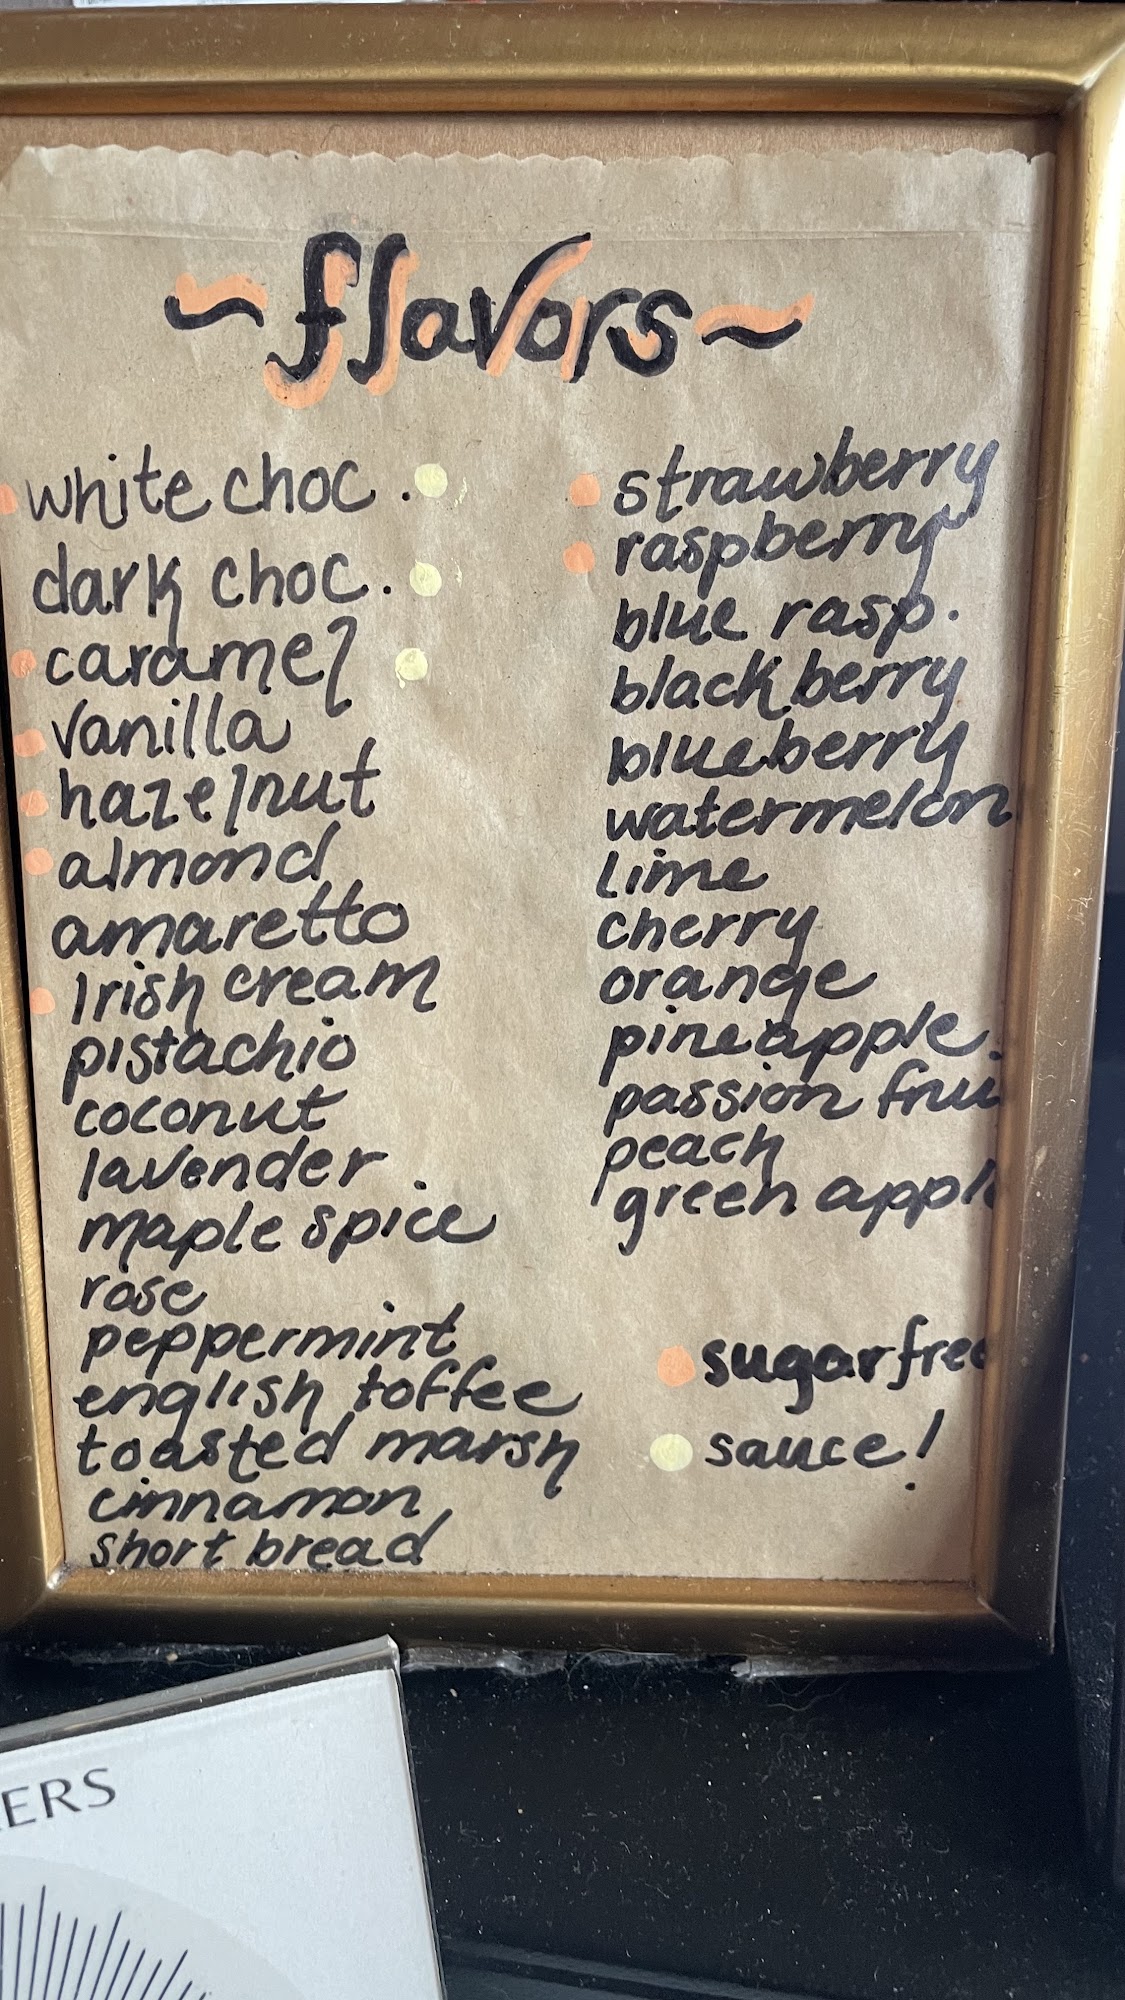 ~flavors~
white choc.
dark choc.
caramel
vanilla
hazelnut
almond
amaretto
Irish cream
pistachio
coconut
lavender
maple spice
rose
peppermint
english toffee
toasted marsh
cinnamon
short bread
strawberry
raspberry
blue rasp.
blackberry
blueberry
watermelon
lime
cherry
orange
pineapple
passion frui
peach
green apple
sugar free
sauce!
ERS